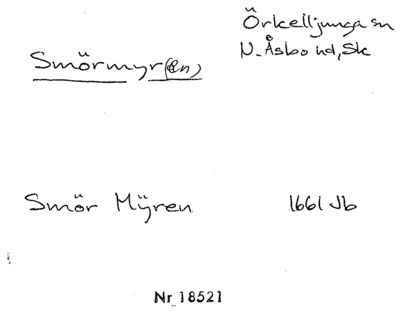 Örkelljunga sn
Smörmyr(en)
N. Åsbo hd, Sk
Smör Mÿren 1661 Jb
Nr 18521